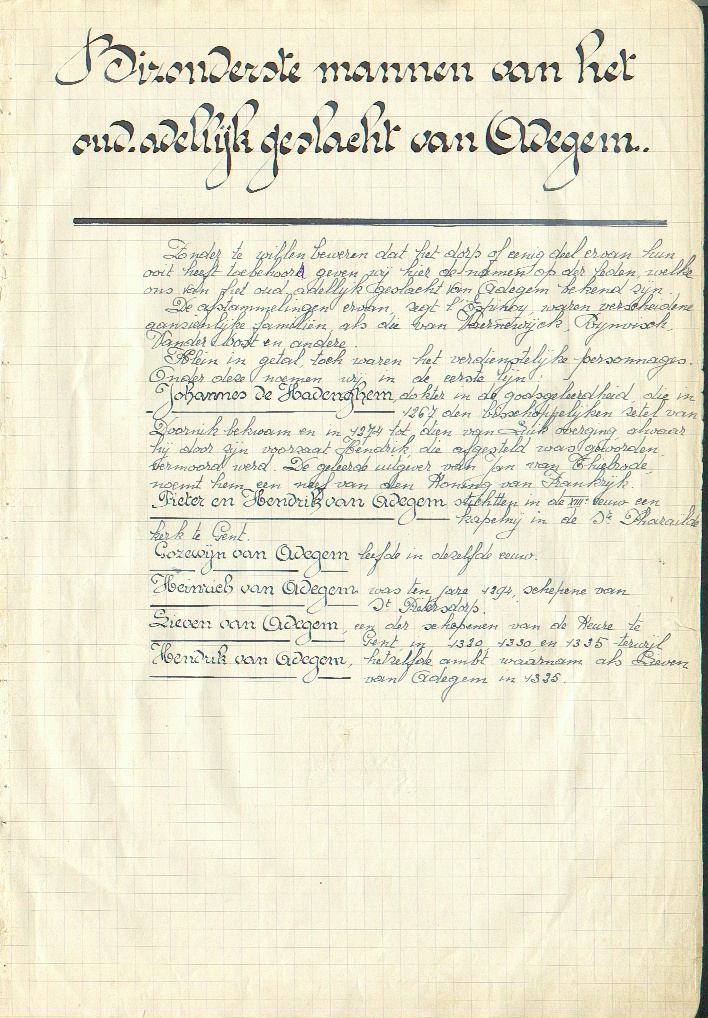 Bizonderste mannen van het
oud.adellijk geslacht van Adegem..
Zonder te willen beweren dat het dorp of eenig deel ervan hun
ooit heeft toebehoord geven wij hier de namen op der leden, welke
ons van het oud adellijk geslacht van Adegem bekend zijn.
De afstammelingen ervan, zegt l'Espinoy, waren verscheidene
aanzienlijke familiën, als die van Vaernewijck, Rijmvisch,
Vander en andere.
Klein in getal, toch waren het verdienstelijke personnages.
Onder deze noemen wij in de eerste lijn:
Johannes de Hadenghem, dokter in de godsgeleerdheid, die in
1267 den bisschoppelijken zetel van
Doornik bekwam en in 1274 tot dien van Luik overging alwaar
hij door zijn voorzaat Hendrik, die afgesteld was geworden
vermoord werd. De geleerde uitgever van Jan van Thielrode,
noemt hem een neef van den Koning van Frankrijk.
Pieter en Hendrik van Adegem stichtten in de XIIIe eeuw een
kapelnij in de St Pharaïlde
kerk te Gent.
Gozewijn van Adegem leefde in dezelfde eeuw.
Heinrich van Adegem was ten jare 1294, schepene van
St Pietersdorp.
Lieven van Adegem, een der schepenen van de Keure te
Gent, in 1320, 1330 en 1335 terwijl
Hendrik van Adegem, hetzelfde ambt waarnam als Lieven
van Adegem in 1335.